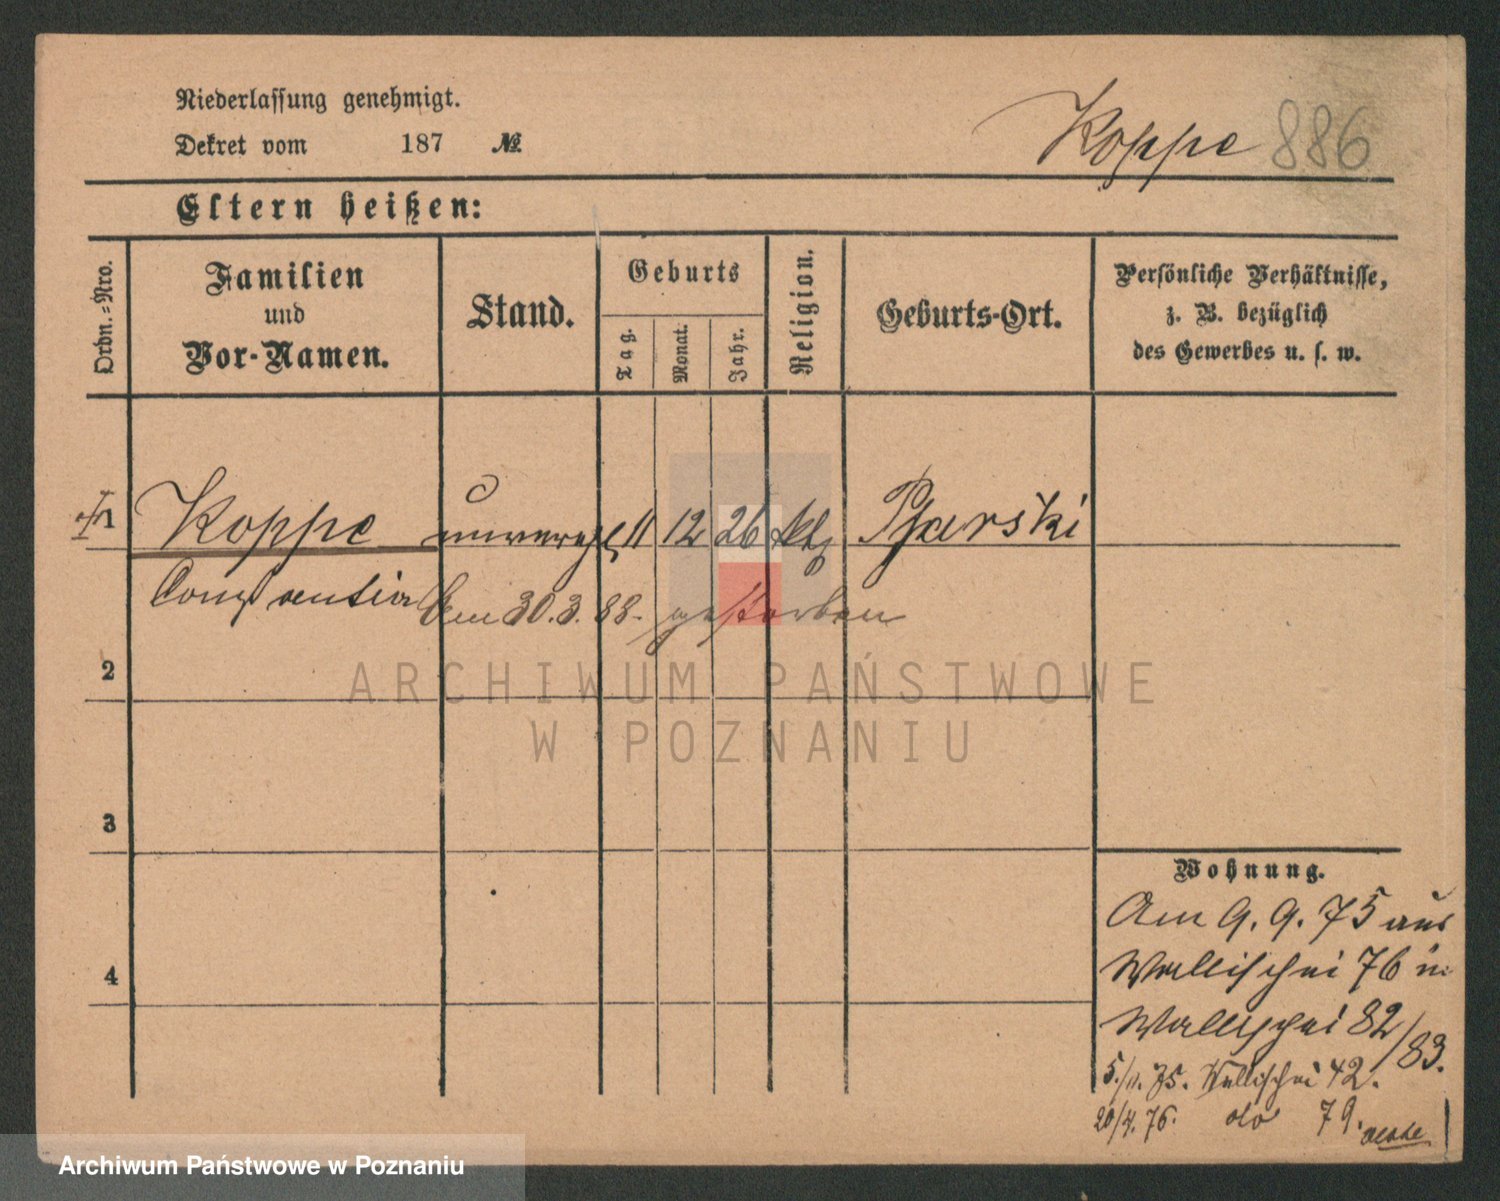 Niederlassung genehmigt.
Dekret vom 187 №
Koppe 886
Eltern heißen:
Ordn.-Nro.
Familien
und
Vor-Namen.
Stand.
Geburts
Tag.
Monat.
Jahr.
Religion.
Geburts-Ort.
Persönliche Verhältnisse,
z. B. bezüglich
des Gewerbes u. s. w.
1 Koppe unverehl 11 12 26 kth Pfarski
Constantia Am 30.3.88. gestorben
2
3
4
Wohnung.
Am 9. 9. 75 aus
Wallischei 76 in
Wallischei 82/83.
5./11. 75. Wallischei 42.
20/4. 76. do 79.
ARCHIWUM PAŃSTWOWE
W POZNANIU
Archiwum Państwowe w Poznaniu